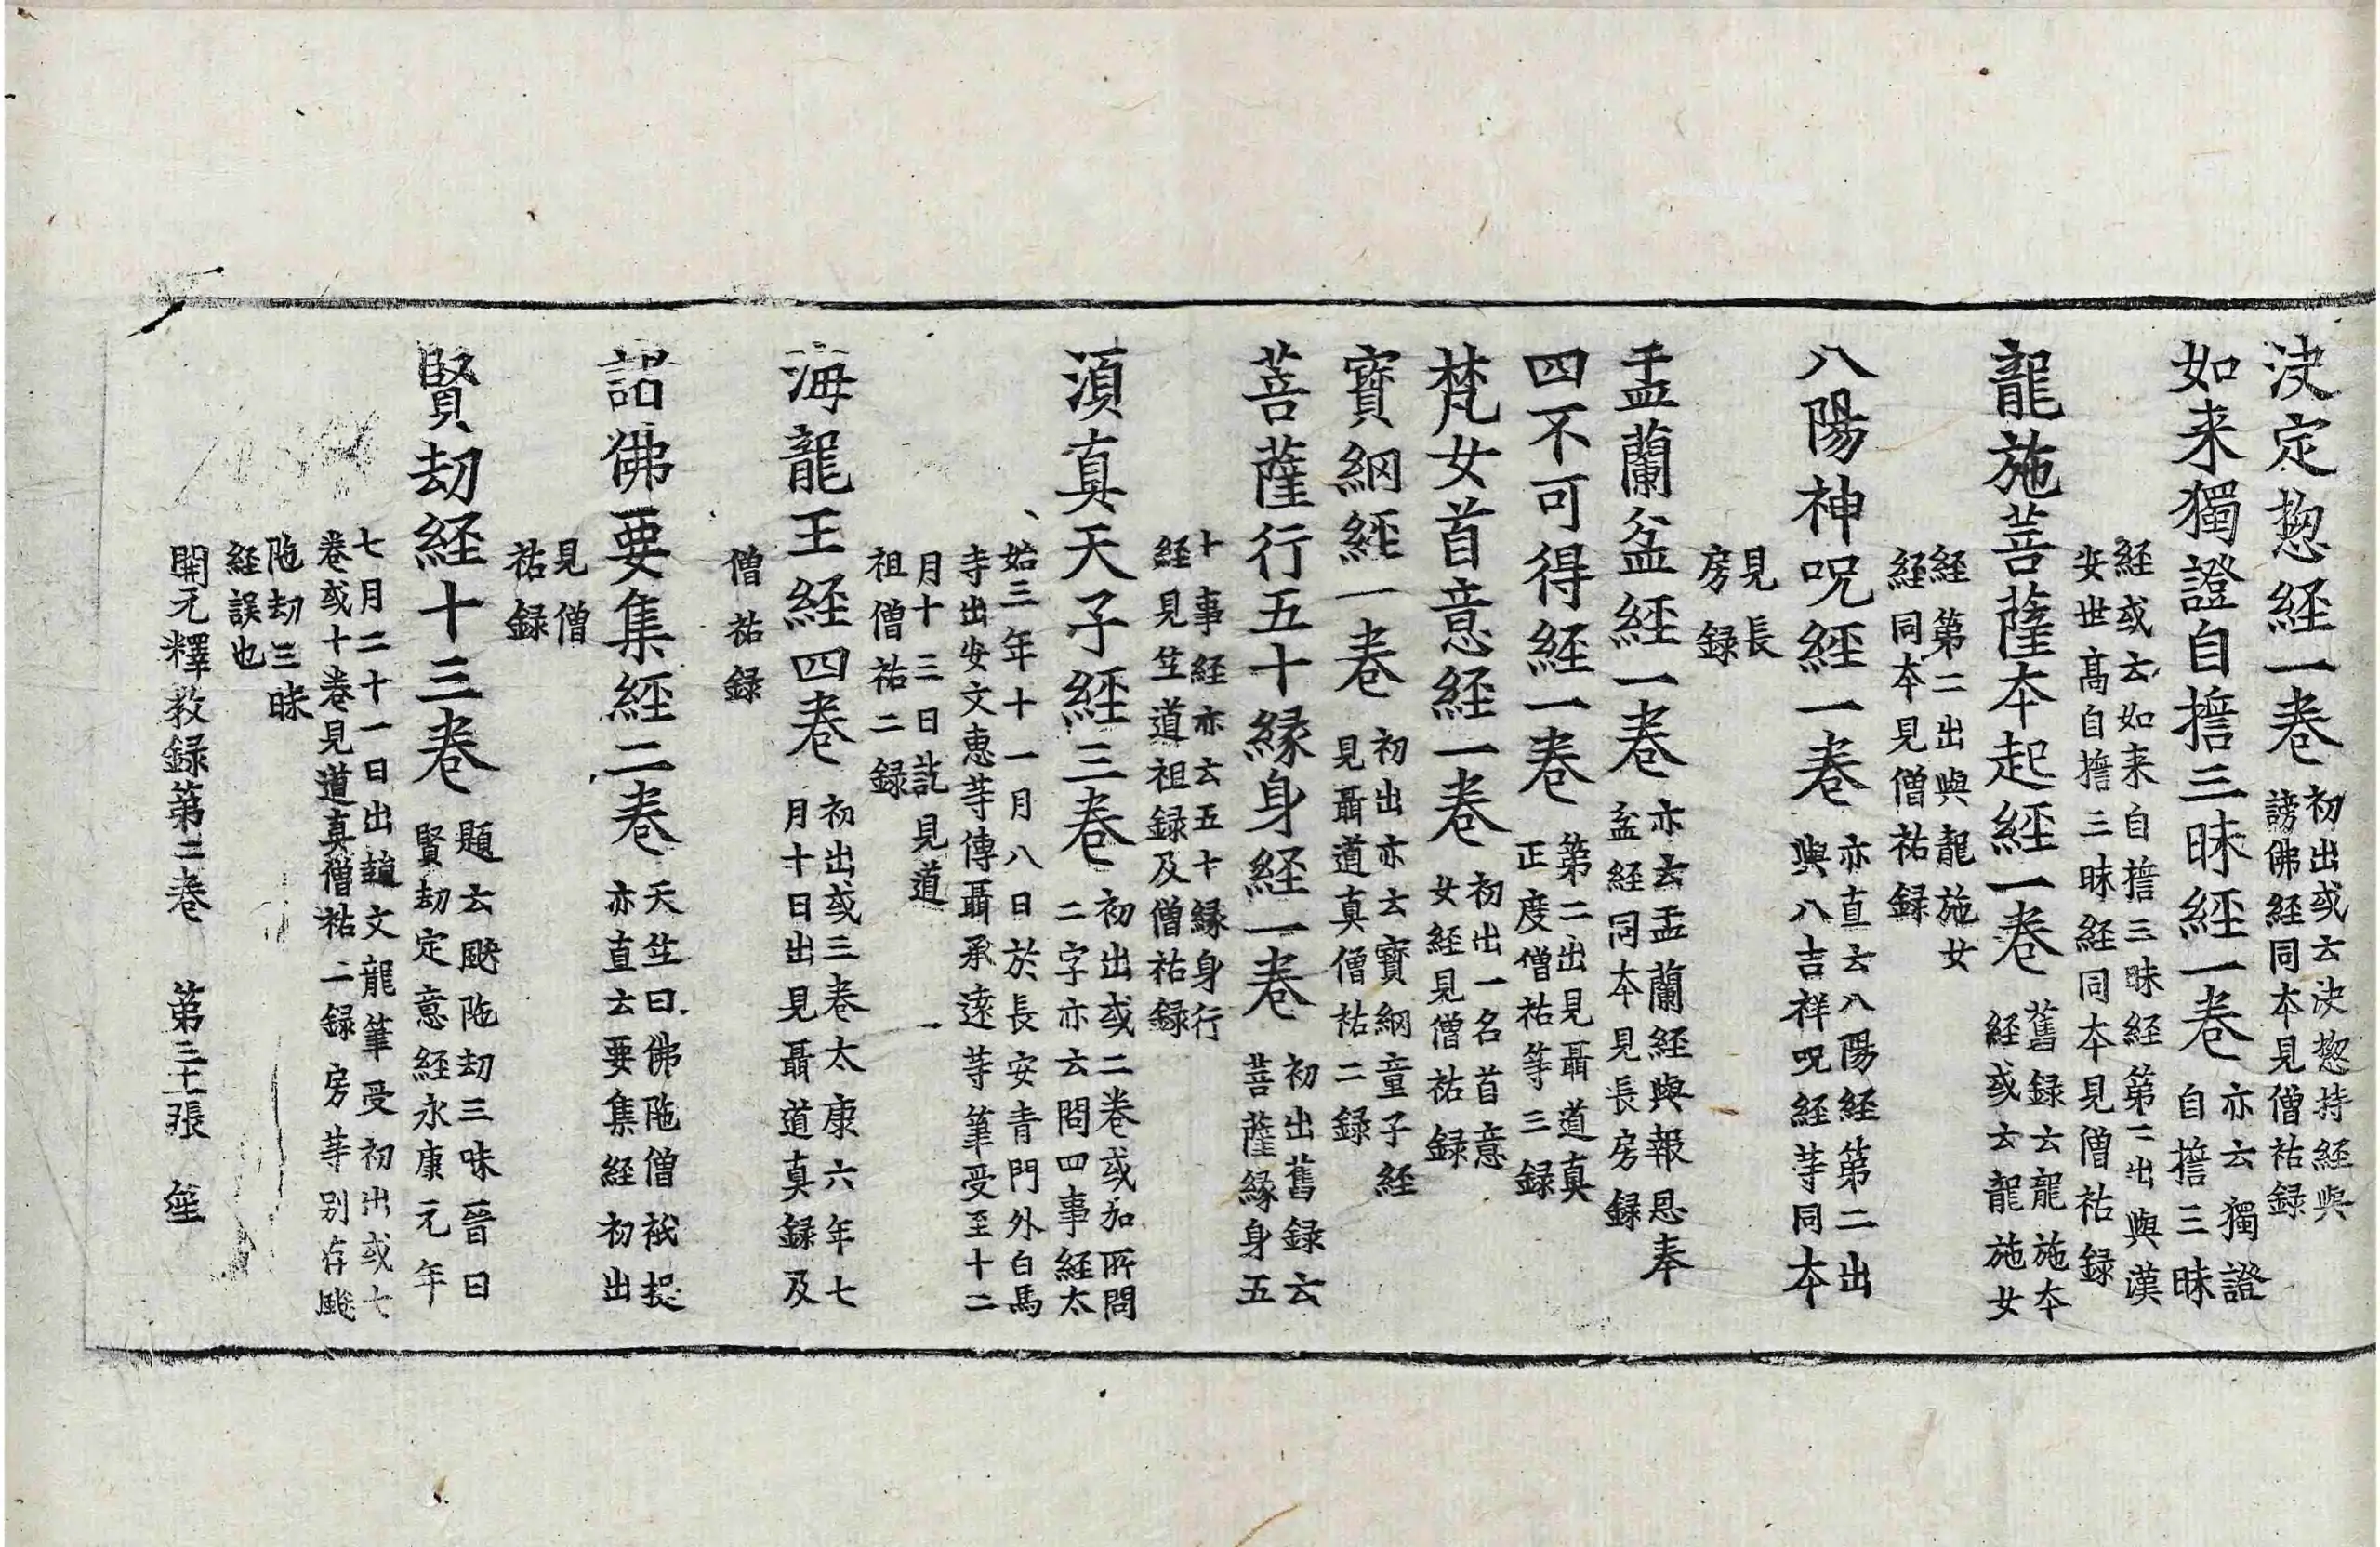 决定揔経一卷初出或云决揔持経與
謗佛経同本見僧祐録
如来獨證自誓三昧經一卷亦云獨證
自誓三昧
経或云如来自誓三昧経第二出與漢
安世髙自誓三昧経同本見僧祐録
龍施菩薩本起經一卷舊録云龍施本
経或云龍施女
経第二出與龍施女
経同本見僧祐録
八陽神呪經一卷亦直云八陽経第二出
與八吉祥呪経等同本
見長
房録
盂蘭盆經一卷亦云盂蘭経與報恩奉
盆経同本見長房録
四不可得經一卷第二出見聶道真
正度僧祐等三録
梵女首意経一卷初出一名首意
女経見僧祐録
寳網経一卷初出亦云寳網童子経
見聶道真僧祐二録
菩薩行五十縁身経一卷初出舊録云
菩薩縁身五
十事経亦云五十縁身行
経見竺道祖録及僧祐録
湏真天子經三卷初出或二卷或加所問
二字亦云問四事経太
始三年十一月八日於長安青門外白馬
寺出安文惠等傳聶承逺等筆受至十二
月十三日訖見道
祖僧祐二録
海龍王経四卷初出或三卷太康六年七
月十日出見聶道真録及
僧祐録
諸佛要集經二卷天竺曰佛陁僧祇提
亦直云要集経初出
見僧
祐録
賢劫経十三卷題云颰陁劫三昧晉曰
賢劫定意経永康元年
七月二十一日出趙文龍筆受初出或七
卷或十卷見道真僧祐二録房等别存颰
陁劫三昧
経誤也
開元釋教録第二卷 第三十一張 筵